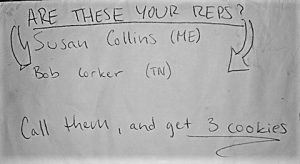 ARE THESE YOUR REPS?
Susan Collins (ME)
Bob Corker (TN)
Call them, and get 3 cookies